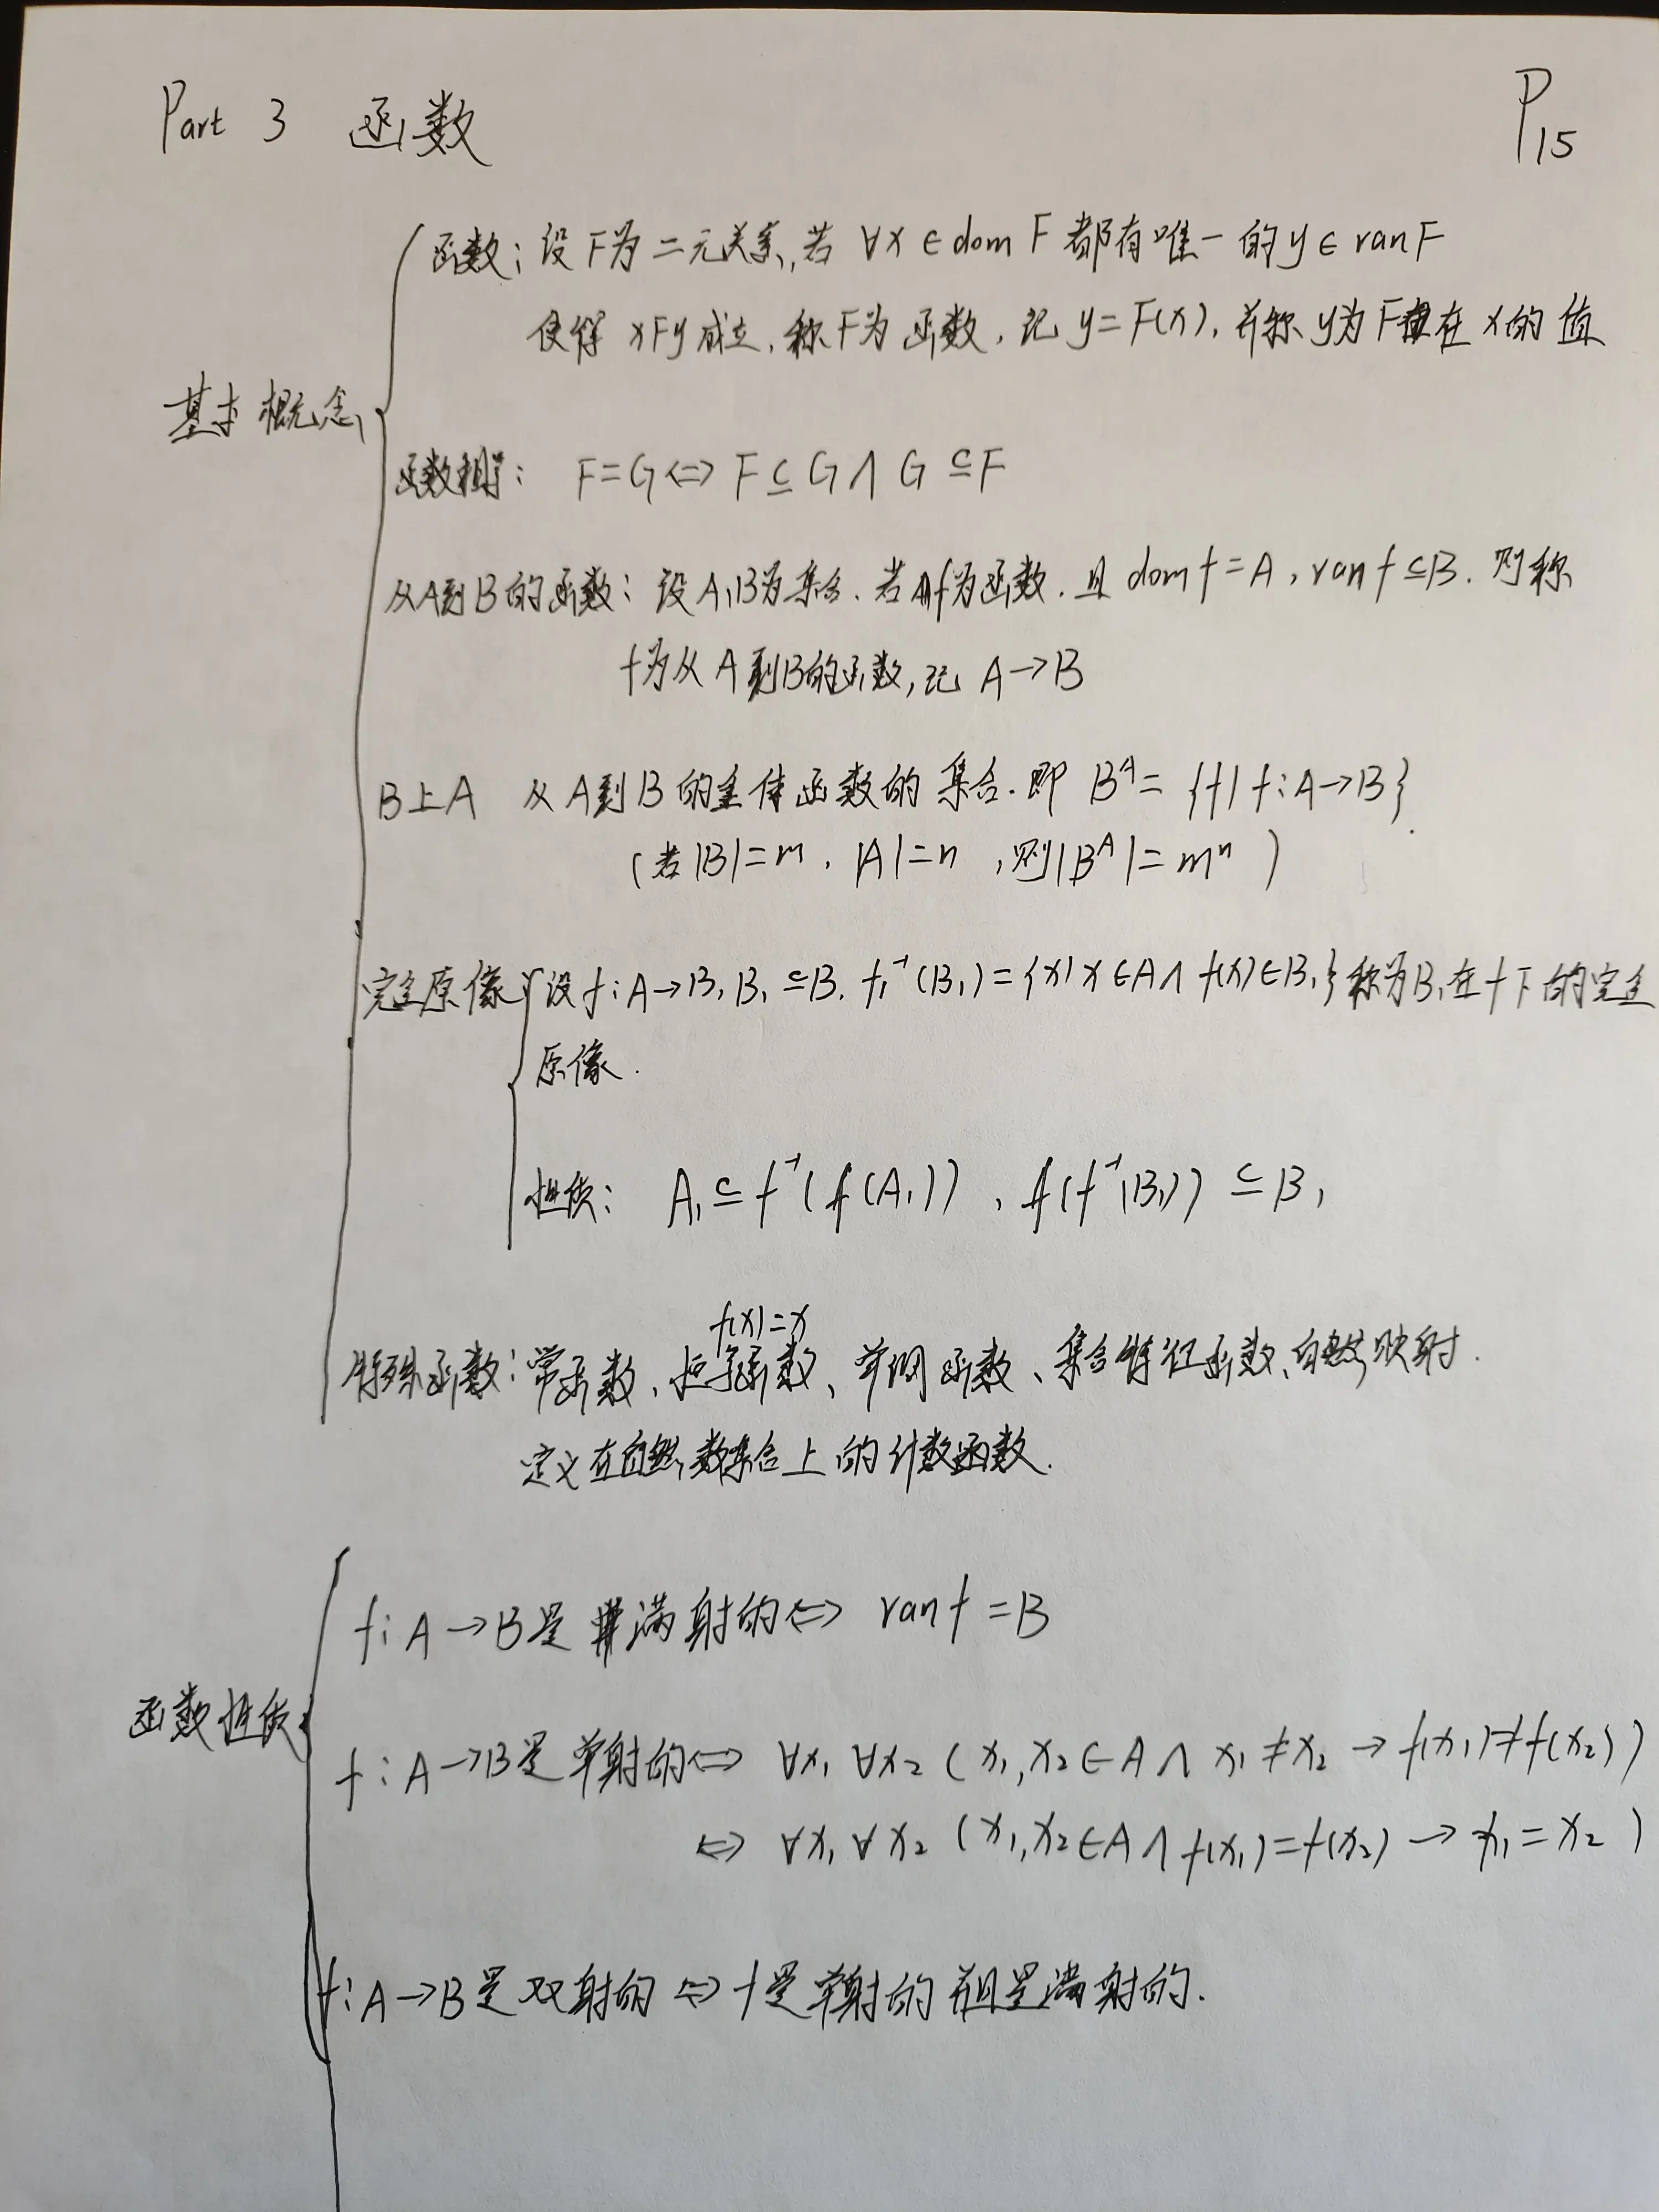 Part 3 函数
P15
函数: 设F为二元关系,若 ∀x∈dom F 都有唯一的y∈ranF
使得 xFy成立,称F为函数,记 y=F(x),并称y为F在x的值
基本概念
函数相等: F=G⇔F⊆G∧G⊆F
从A到B的函数: 设A,B为集合.若f为函数.且 dom f=A,ran f⊆B.则称
f为从A到B的函数,记 A→B
B上A 从A到B的全体函数的集合.即 Bᴬ={f|f:A→B}.
(若|B|=m,|A|=n,则|Bᴬ|=mⁿ)
完全原像 设f:A→B,B₁⊆B.f⁻¹(B₁)={x|x∈A∧f(x)∈B₁}称为B₁在f下的完全
原像.
性质: A₁⊆f⁻¹(f(A₁)),f(f⁻¹(B₁))⊆B₁
f(x)=x
特殊函数:常函数、恒等函数、单调函数、集合特征函数、自然映射.
定义在自然数集合上的计数函数.
f:A→B是满射的⇔ ran f=B
函数性质
f:A→B是单射的⇔ ∀x₁∀x₂(x₁,x₂∈A∧x₁≠x₂→f(x₁)≠f(x₂))
⇔ ∀x₁∀x₂(x₁,x₂∈A∧f(x₁)=f(x₂)→x₁=x₂)
f:A→B是双射的⇔f是单射的而且是满射的.